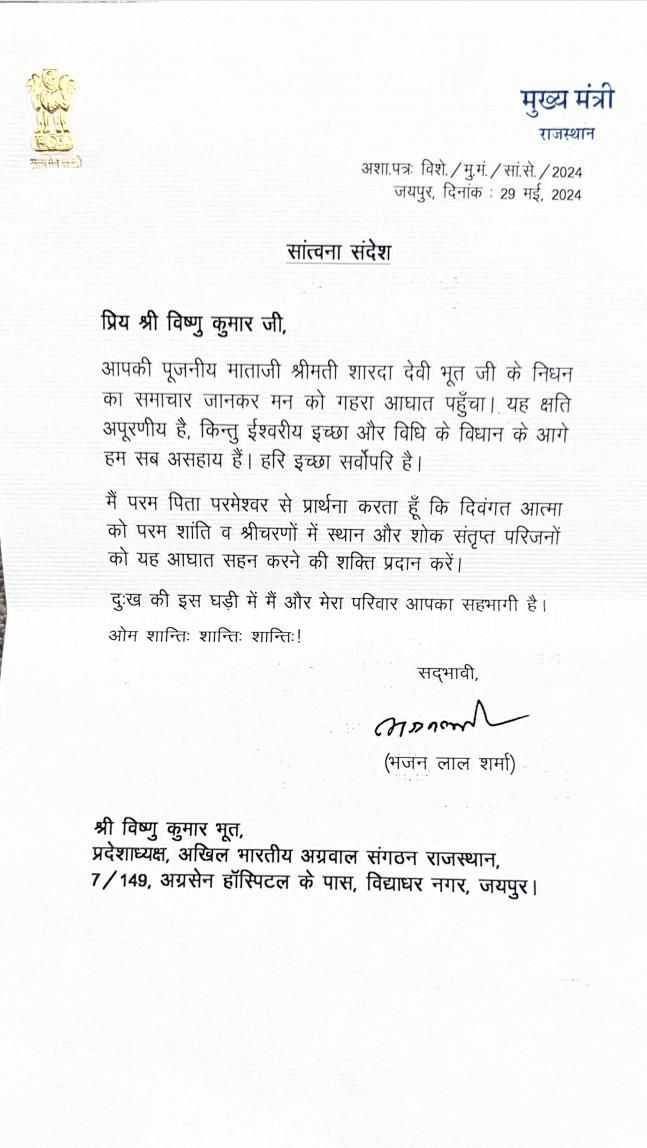 सत्यमेव जयते
मुख्य मंत्री
राजस्थान
अशा.पत्रः विशे./मु.मं./सां.से./2024
जयपुर, दिनांक : 29 मई, 2024
सांत्वना संदेश
प्रिय श्री विष्णु कुमार जी,
आपकी पूजनीय माताजी श्रीमती शारदा देवी भूत जी के निधन
का समाचार जानकर मन को गहरा आघात पहुँचा। यह क्षति
अपूरणीय है, किन्तु ईश्वरीय इच्छा और विधि के विधान के आगे
हम सब असहाय हैं। हरि इच्छा सर्वोपरि है।
मैं परम पिता परमेश्वर से प्रार्थना करता हूँ कि दिवंगत आत्मा
को परम शांति व श्रीचरणों में स्थान और शोक संतृप्त परिजनों
को यह आघात सहन करने की शक्ति प्रदान करें।
दुःख की इस घड़ी में मैं और मेरा परिवार आपका सहभागी है।
ओम शान्तिः शान्तिः शान्तिः!
सद्भावी,
(भजन लाल शर्मा)
श्री विष्णु कुमार भूत,
प्रदेशाध्यक्ष, अखिल भारतीय अग्रवाल संगठन राजस्थान,
7/149, अग्रसेन हॉस्पिटल के पास, विद्याधर नगर, जयपुर।